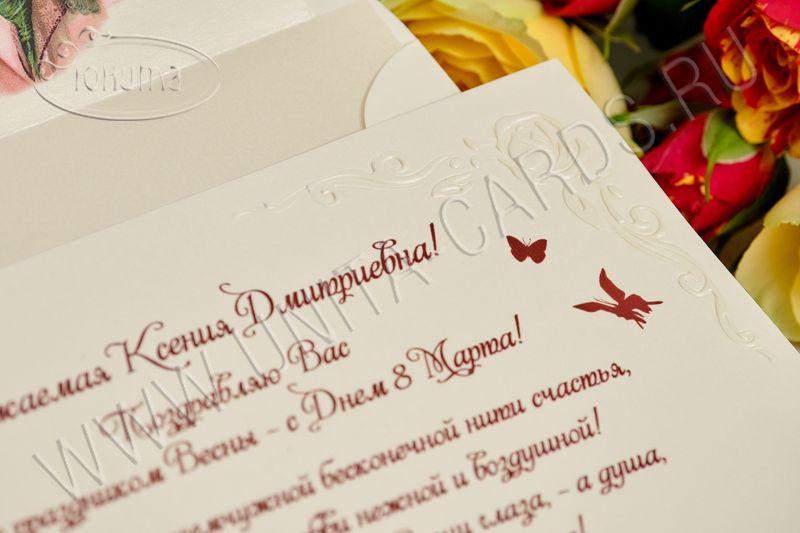 Юнита
WWW.UNITA-CARDS.RU
жаемая Ксения Дмитриевна!
Поздравляю Вас
праздником Весны – с Днем 8 Марта!
емчужной бесконечной нити счастья,
нежной и воздушной!
глаза, – а душа,